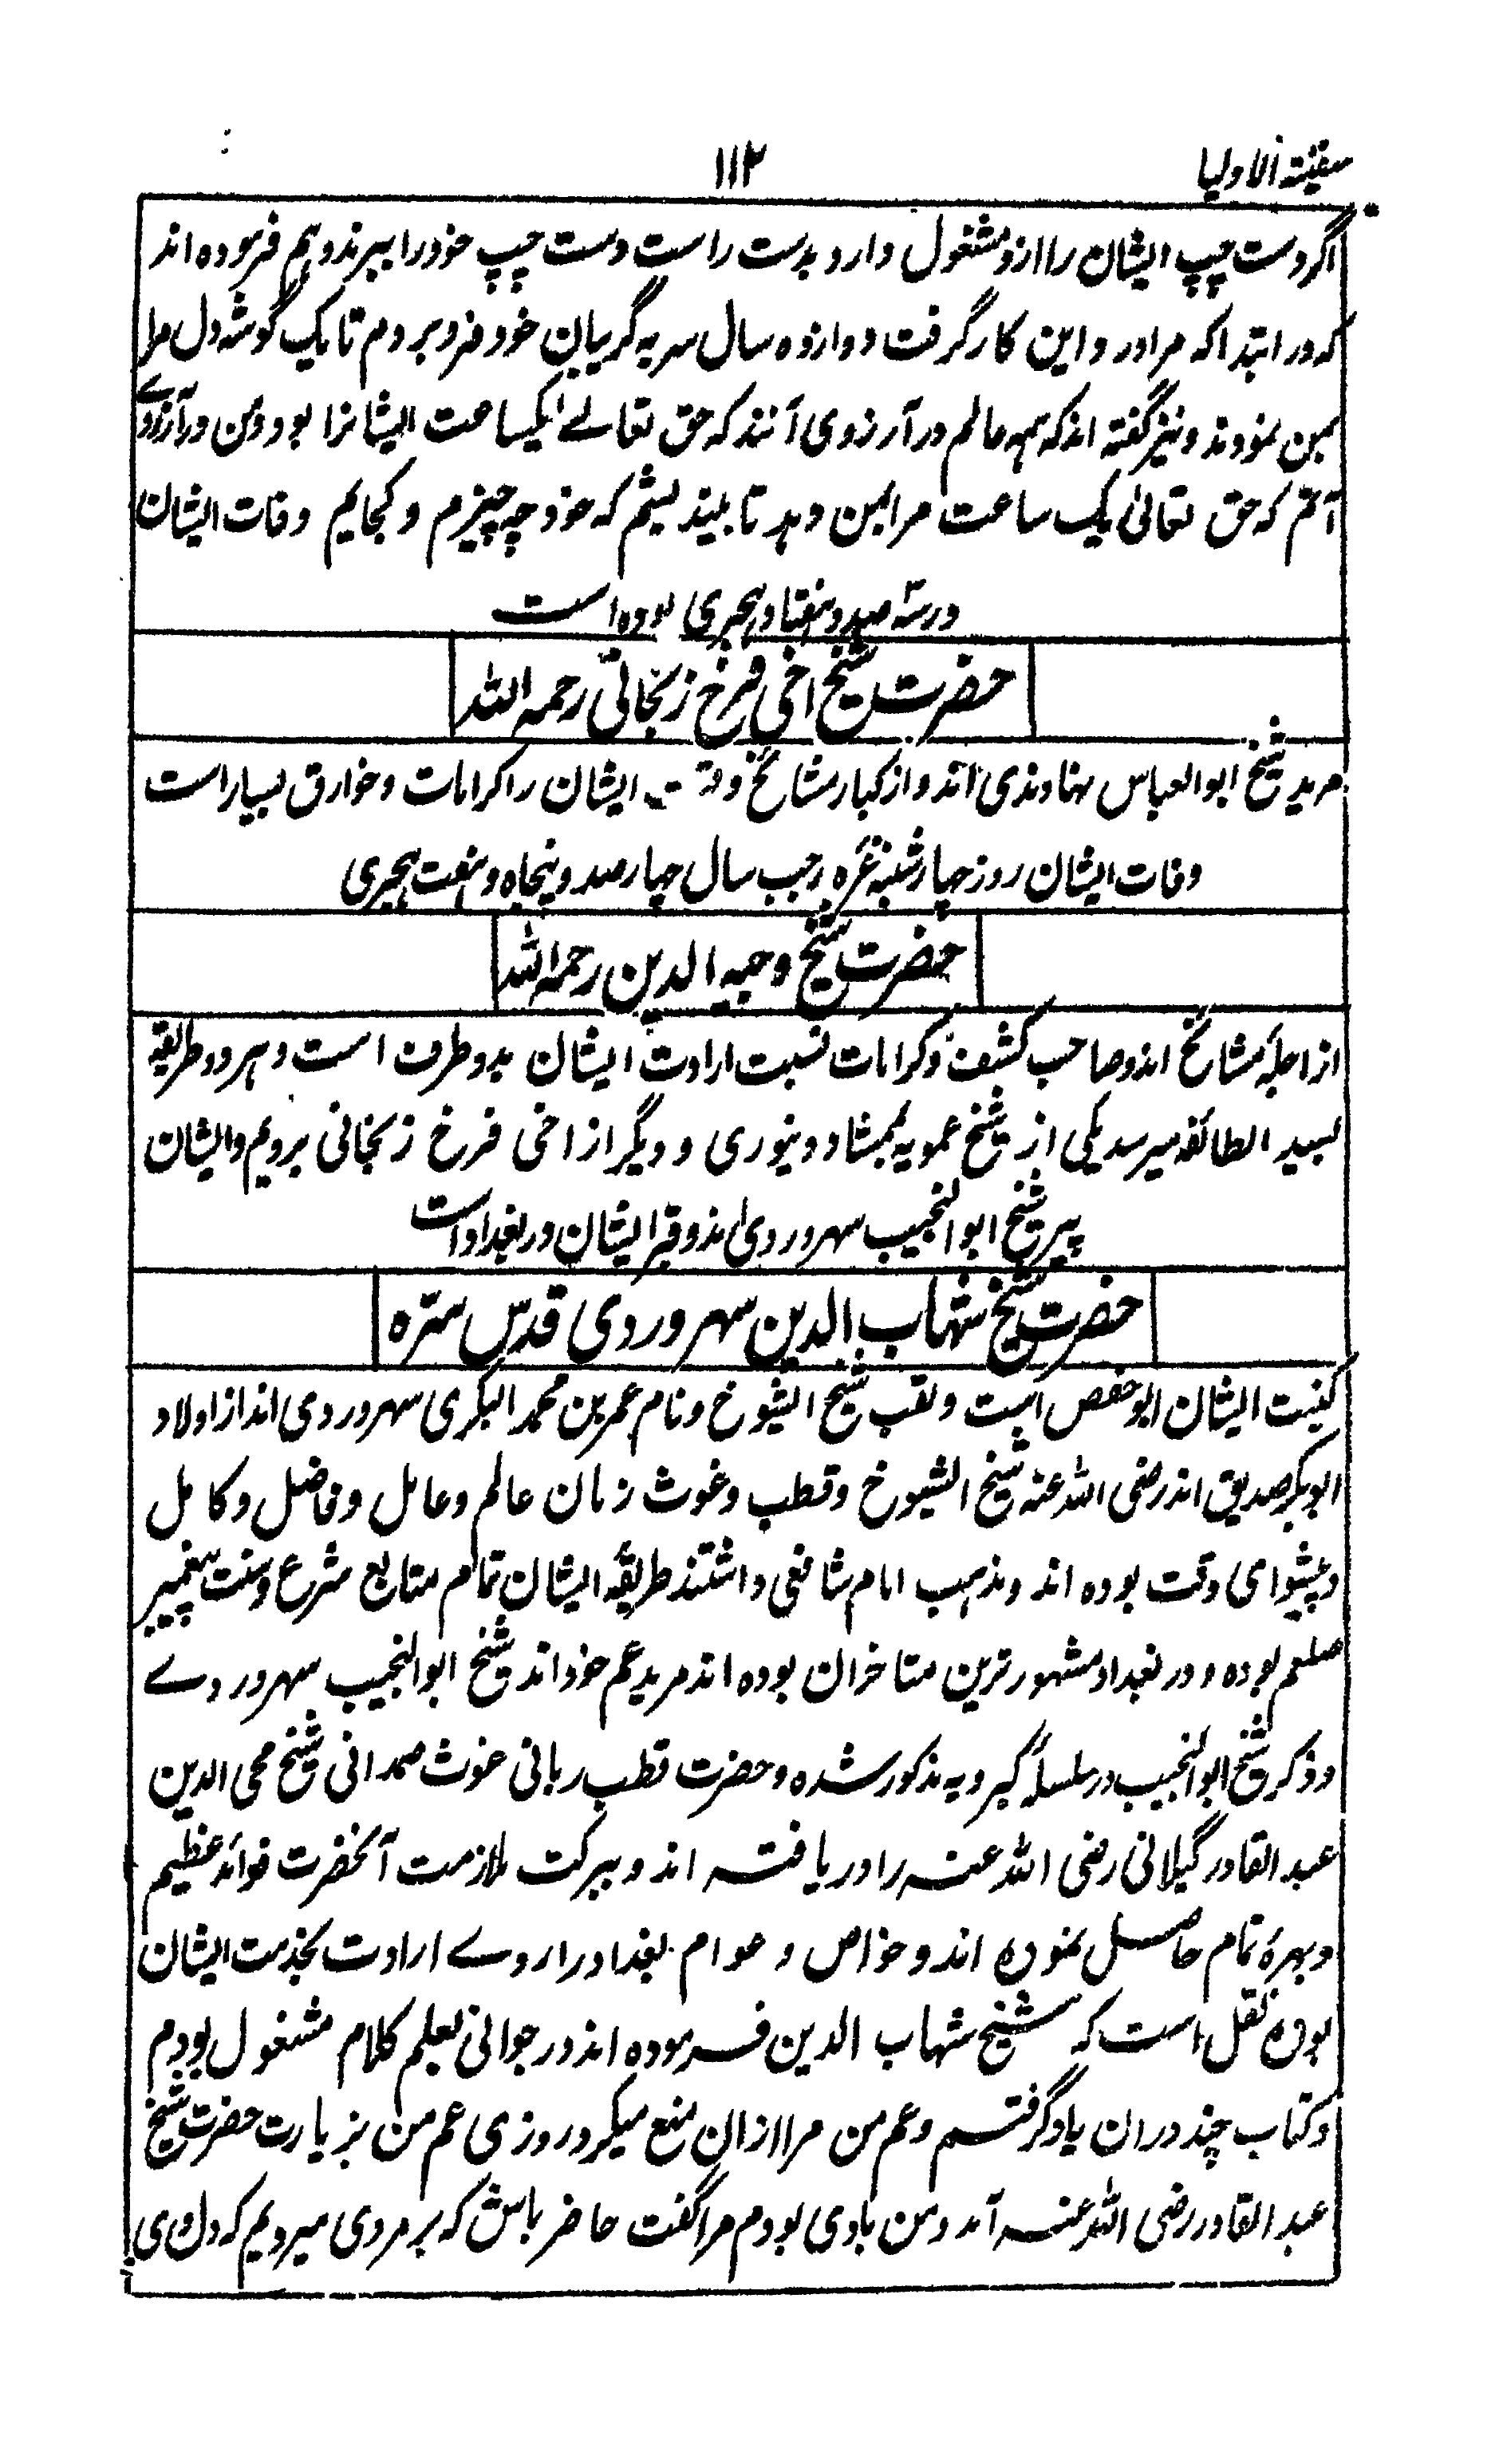 سفینۃ الاولیا
۱۱۲
اگر دست چپ ایشان را ازو مشغول دارد بدست راست دست چپ خود را ببرند و ہم فرمودہ اند
کہ در ابتدا کہ مرا درد این کار گرفت دوازدہ سال سر بہ گریبان خود فرو بردم تا یک گوشہ دل مرا
بمن نمودند و نیز گفتہ اند کہ ہمہ عالم در آرزوی آنند کہ حق تعالے یکساعت ایشانرا بود و من در آرزوے
آنم کہ حق تعالیٰ یک ساعت مرا بمن دہد تا بیندیشم کہ خود چہ چیزم و کجایم وفات ایشان
در سنہ صد و ہفتاد ہجری بودہ است
حضرت شیخ اخی فرخ زنجانی رحمہ اللہ
مرید شیخ ابو العباس نہاوندی اند و از کبار مشائخ وقت ایشان را کرامات و خوارق بسیار است
وفات ایشان روز چہارشنبہ غرہ رجب سال چہار صد و پنجاہ و ہفت ہجری
حضرت شیخ وجیہ الدین رحمہ اللہ
از اجلہٴ مشائخ اند و صاحب کشف و کرامات نسبت ارادت ایشان بدو طرف است و ہر دو طریقہ
بسید الطائفہ میرسد یکی از شیخ عمویہ بممشاد دینوری و دیگر از اخی فرخ زنجانی برویم و ایشان
پیر شیخ ابو النجیب سہروردی اند و قبر ایشان در بغداد است
حضرت شیخ شہاب الدین سہروردی قدّس سرّہ
کنیت ایشان ابو حفص است و لقب شیخ الشیوخ و نام عمر بن محمد البکری سہروردی اند از اولاد
ابوبکر صدیق اند رضی اللہ عنہ شیخ الشیوخ و قطب و غوث زمان عالم و عامل و فاضل و کامل
و پیشوای وقت بودہ اند و مذہب امام شافعی داشتند طریقہٴ ایشان تمام متابع شرع و سنت پیغمبر
صلعم بودہ و در بغداد مشہور ترین متاخران بودہ اند مرید عم خود اند شیخ ابو النجیب سہروردے
و ذکر شیخ ابو النجیب در سلسلہٴ کبرویہ مذکور شدہ و حضرت قطب ربانی غوث صمدانی شیخ محی الدین
عبد القادر گیلانی رضی اللہ عنہ را دریافتہ اند و ببرکت ملازمت آنحضرت فوائد عظیم
و بہرہٴ تمام حاصل نمودہ اند و خواص و عوام بغداد را روے ارادت بخدمت ایشان
بودہ نقل است کہ شیخ شہاب الدین فرمودہ اند در جوانی بعلم کلام مشغول بودم
و کتاب چند دران یاد گرفتم و عم من مرا ازان منع میکرد روزی عم من بزیارت حضرت شیخ
عبد القادر رضی اللہ عنہ آمد و من با وی بودم مرا گفت حاضر باش کہ بر مردی میرویم کہ دل وی